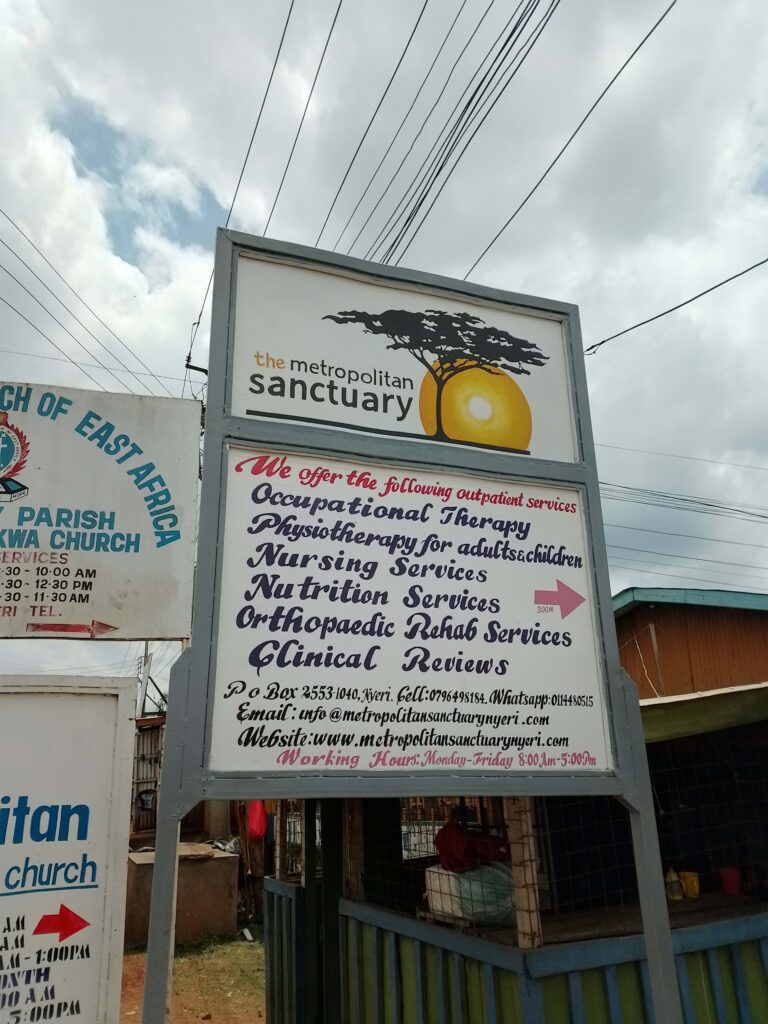 the metropolitan
sanctuary
We offer the following outpatient services
Occupational Therapy
Physiotherapy for adults & children
Nursing Services
Nutrition Services
300M
Orthopaedic Rehab Services
Clinical Reviews
P o Box 2553-1040, Nyeri. Cell: 0796498184. Whatsapp: 0114480515
Email: info@metropolitansanctuarynyeri.com
Website: www.metropolitansanctuarynyeri.com
Working Hours: Monday-Friday 8:00Am-5:00Pm
CH OF EAST AFRICA
HOPE
Y PARISH
KWA CHURCH
SERVICES
:30 - 10:00 AM
:30 - 12:30 PM
:30 - 11:30 AM
TRI TEL.
itan
church
AM
AM
AM - 1:00PM
ONTH
00 AM
5:00PM